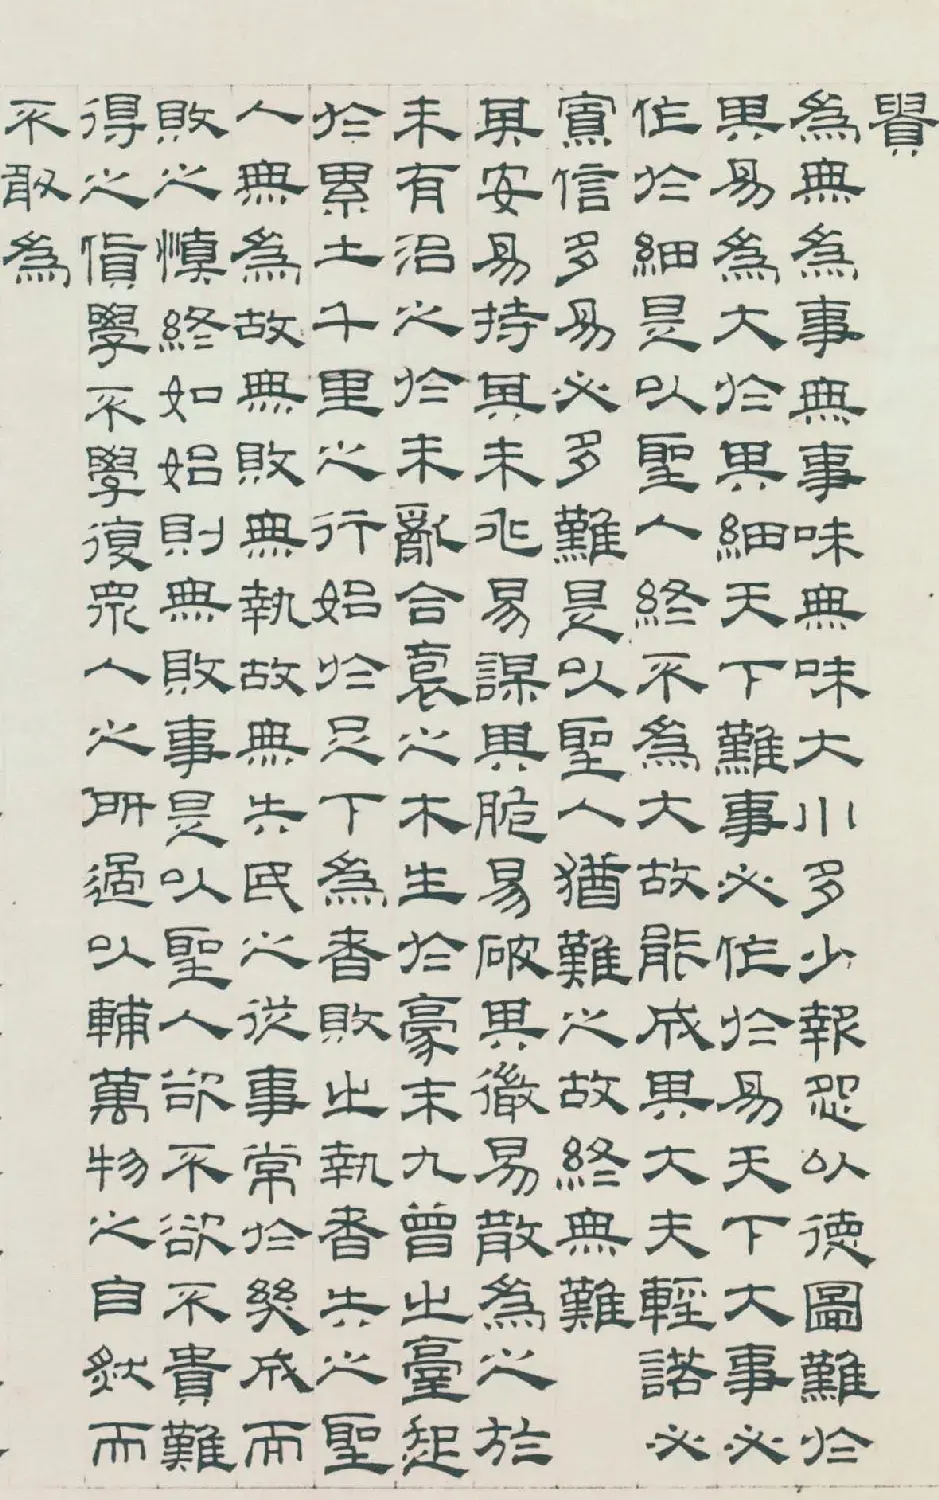 貴
為無為事無事味無味大小多少報怨以德圖難於
其易為大於其細天下難事必作於易天下大事必
作於細是以聖人終不為大故能成其大夫輕諾必
寡信多易必多難是以聖人猶難之故終無難
其安易持其未兆易謀其脆易破其微易散為之於
未有治之於未亂合袌之木生於豪末九曾之臺起
於累土千里之行始於足下為者敗之執者失之聖
人無為故無敗無執故無失民之從事常於幾成而
敗之慎終如始則無敗事是以聖人欲不欲不貴難
得之貨學不學復眾人之所過以輔萬物之自然而
不敢為